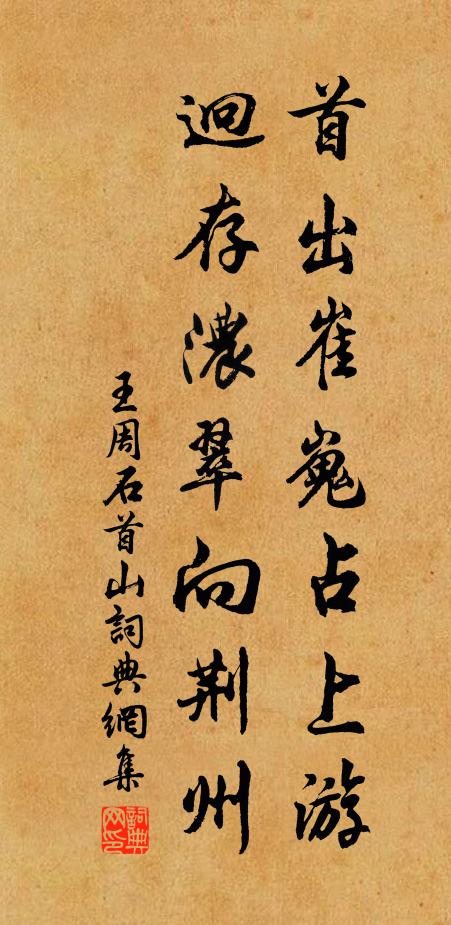 首出崔嵬占上游
迥存濃翠向荆州
王周石首山詞典網集
詞典网印